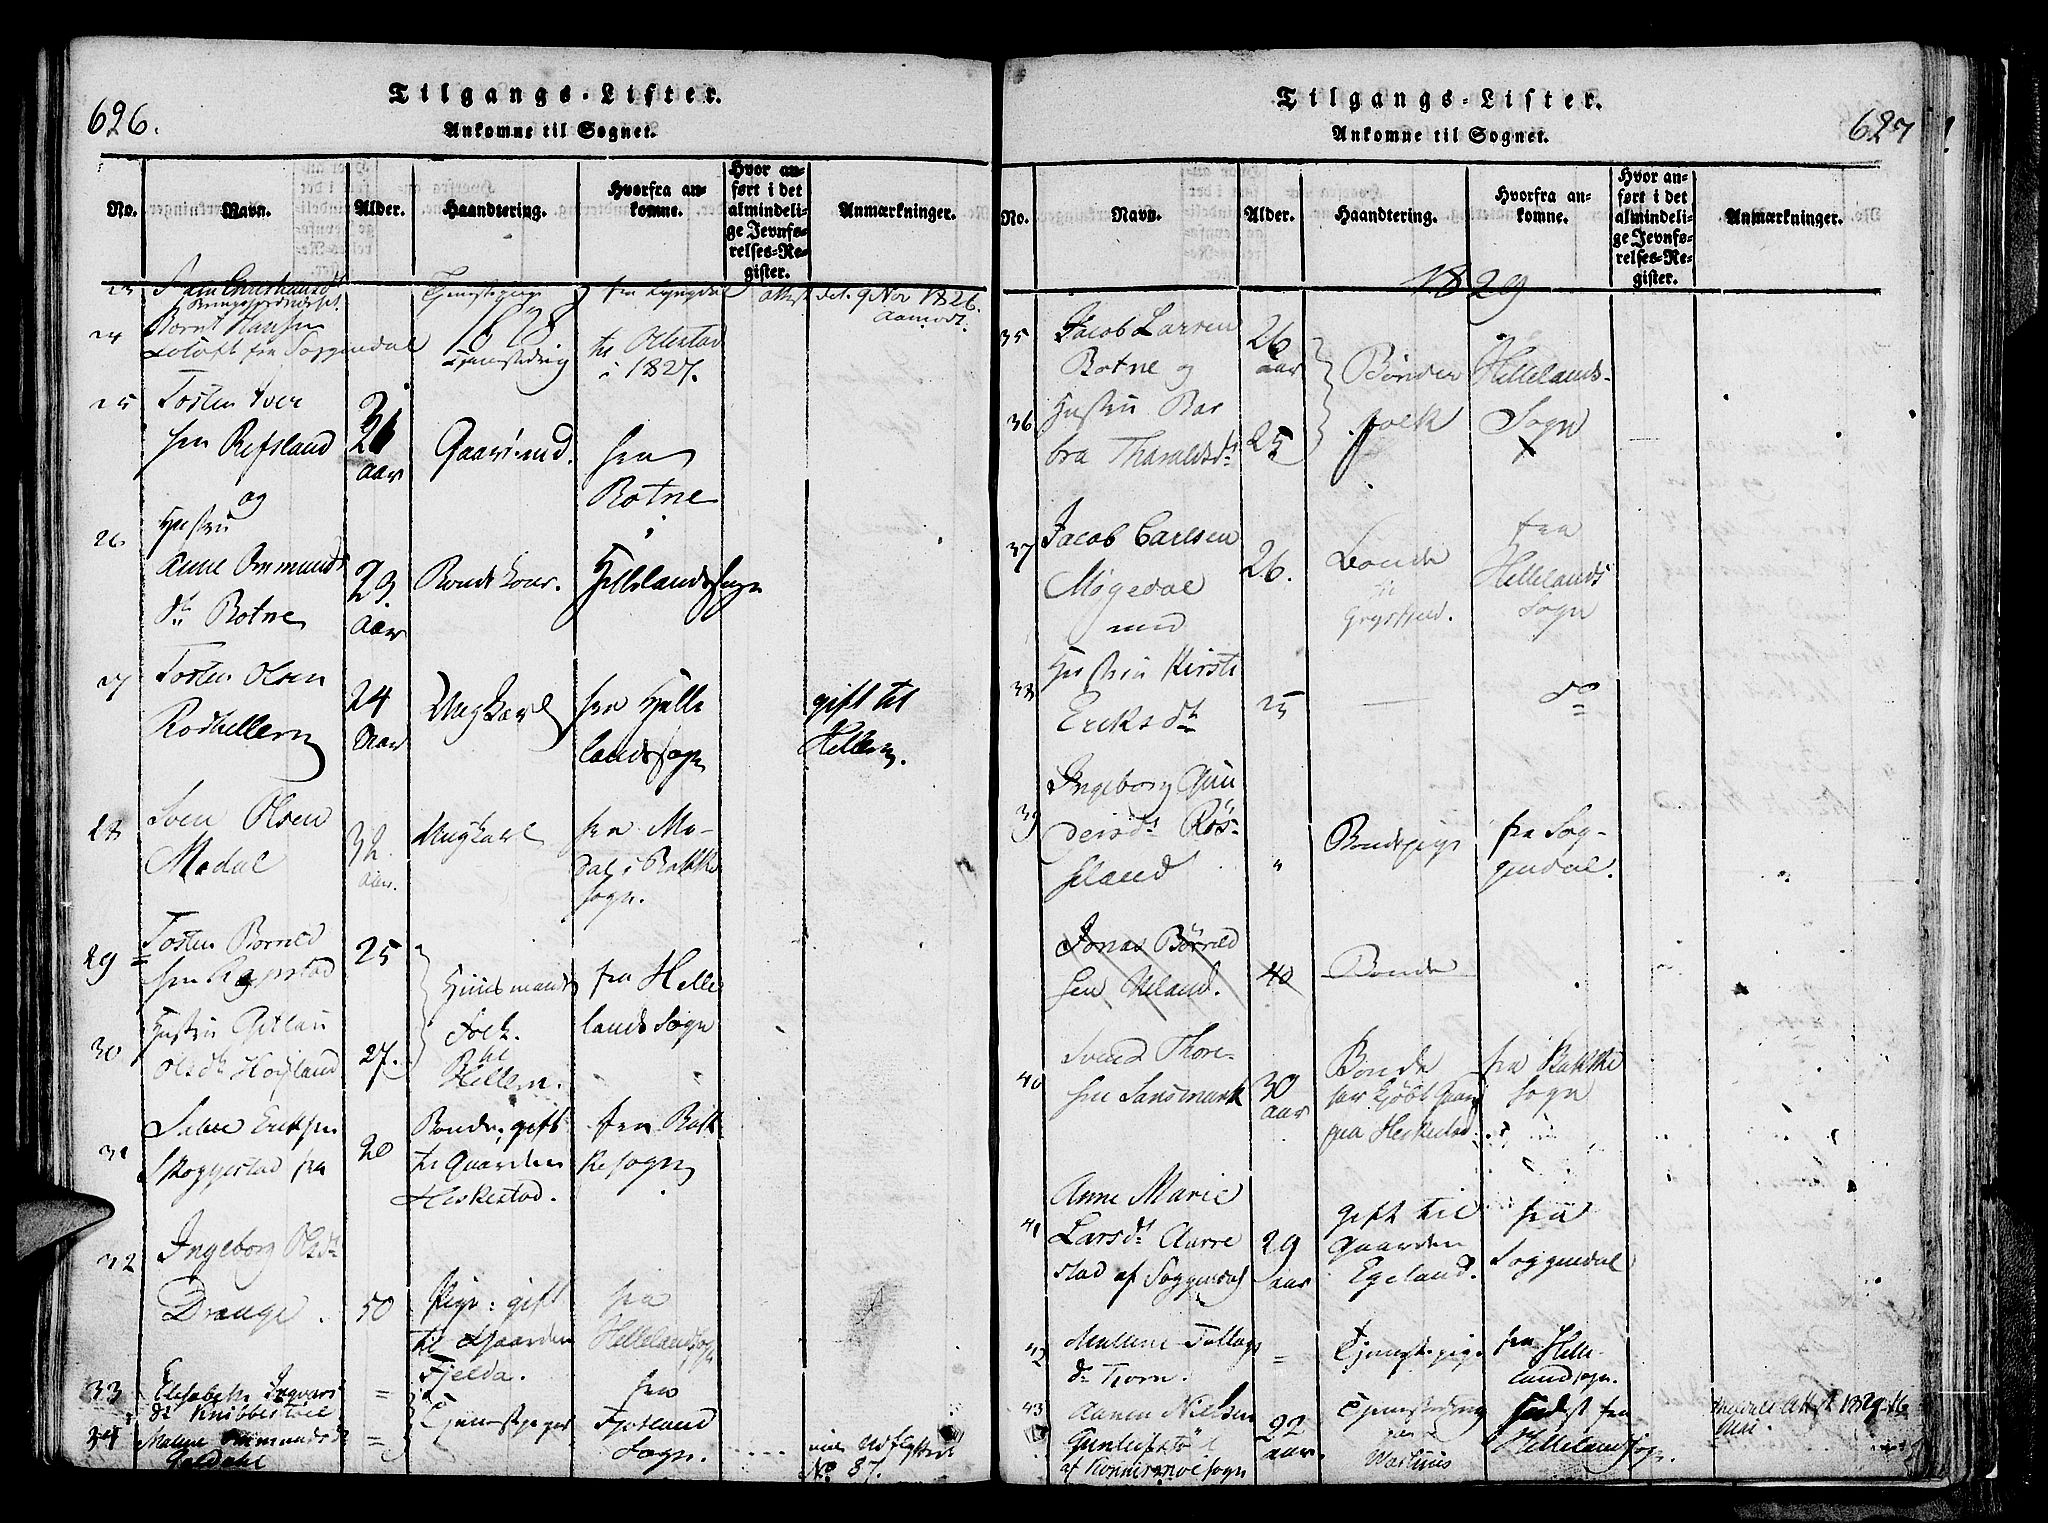 626.
Tilgangs-Lister.
Ankomne til Sognet.
No.
Navn.
Alder.
Haandtering.
Hvorfra an-
komne.
Hvor an-
ført i det
almindeli-
ge Jevnfø-
relses-Re-
gister.
Anmærkninger.
23
Tjenestepige
fra Lyngdal
attest dat. 9 Nov 1826.
Aamodt.
1828
24
Bernt Hansen
fra Soggendal
til
i 1827.
25
Tosten Iver
sen Refsland
og
26
aar
Gaardmd.
fra
Botne
i
26
Hustru
Anne Ommunds
dtr Botne
29.
aar
Bondekone.
Hellelandssogn
27
Tosten Olsen
Rodhellern
24
Aar
Ungkarl
fra Helle
landssogn
gift til
Hellern.
28
Sven Olsen
Modal
32
aar.
Ungkarl
fra Mo-
dal i Bakke
sogn.
29
Tosten Børild
sen Røgstad
25
Huusmands
Folk.
til
Hellern.
fra Helle
lands Sogn
30
Hustru
Olsdtr Høyland
27.
31
Salve Eriksen
Skoggestad fra
20
Bonde, gift
til Gaarden
Heskestad.
fra Bak-
ke sogn
32
Ingeborg Olsdtr
Drange.
50
Pige: gift
til Gaarden
Fjelda.
fra
Hellelandsogn
33
Elisabeth Ingvars
dtr Knibbestøel
=
Tjenestepiger
fra
Fjotland
Sogn.
34
Malene Ommundsdtr
=
No 87.
627
Tilgangs-Lister.
Ankomne til Sognet.
No.
Navn.
Alder.
Haandtering.
Hvorfra an-
komne.
Hvor an-
ført i det
almindeli-
ge Jevnfø-
relses-Re-
gister.
Anmærkninger.
1829
35
Jacob Larsen
Botne og
26
aar
Bønder
folk
Hellelands-
Sogn
36
Hustru Bar
bra Tharaldsdtr
25
37
Jacob Carlsen
Møgedal
med
26.
Bonde
til
Grystjed.
fra
Hellelands
Sogn
38
Hustru Kirsti
Eriksdtr
25
do
39
Ingeborg Gun
dersdtr Røs-
sland
"
Bondepige
fra Sog-
gendal.
Jonas Børild
sen Ueland.
40
Bonde
40
Svend Thore-
sen Sandsmark
30
aar
Bonde
har kjøbt Gaard
paa Heskestad
fra Bakke
sogn
41
Anne Marie
Larsdtr Aarre
stad af Soggendal
29
aar
gift til
Gaarden
Egeland.
fra
Soggendal
42
Malene Tollags
dtr Tjorn.
=
Tjenestepige
fra Helle-
landsogn.
43
Aanen Nielsen
Gunleikstøl
af sogn
22
aar.
Tjenestedreng
sidst fra
Hellelandsogn.